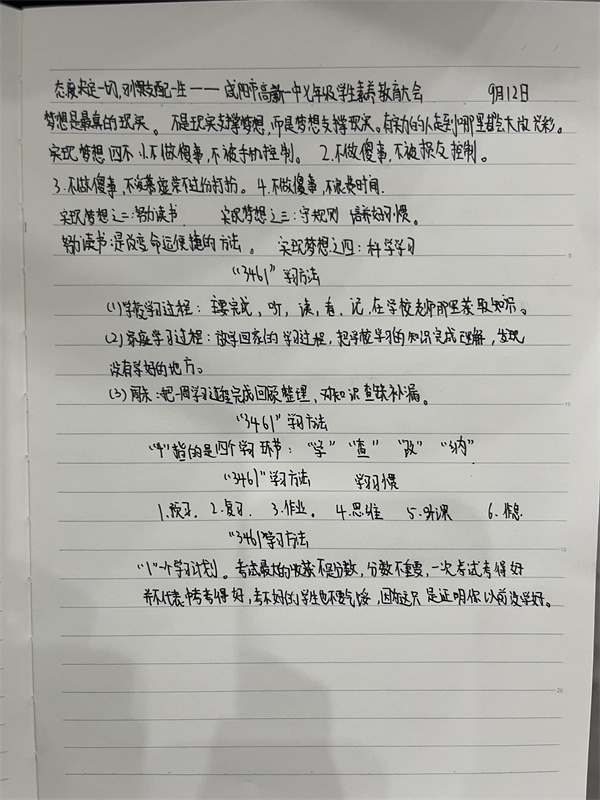 态度决定一切,习惯支配一生——咸阳市高新一中七年级学生素养教育大会 9月12日
梦想是最真的现实。不是现实支撑梦想,而是梦想支撑现实。有实力的人走到哪里都会大放光彩。
实现梦想四不 1.不做傻事,不被手机控制。 2.不做傻事,不被损友控制。
3.不做傻事,不爱慕虚荣不过份打扮。 4.不做傻事,不浪费时间.
实现梦想之二:努力读书 实现梦想之三:守规则 培养好习惯。
努力读书:是改变命运便捷的方法。 实现梦想之四:科学学习
“3461”学习方法
(1)学校学习过程:主要完成,听,读,看,记,在学校老师那里获取知识。
(2)家庭学习过程:放学回家的学习过程,把学校学习的知识完成理解,发现
没有学好的地方。
(3)周末:把一周学习过程完成回顾整理,对知识查缺补漏。
“3461”学习方法
“4”指的是四个学习环节:“学”“查”“改”“纳”
“3461”学习方法 学习习惯
1.预习. 2.复习. 3.作业。 4.思维 5.听课 6.作息
“3461”学习方法
“1”一个学习计划。考试最大的收获不是分数,分数不重要,一次考试考得好
并不代表中考考得好,考不好的学生也不要气馁,因为这只是证明你以前没学好。